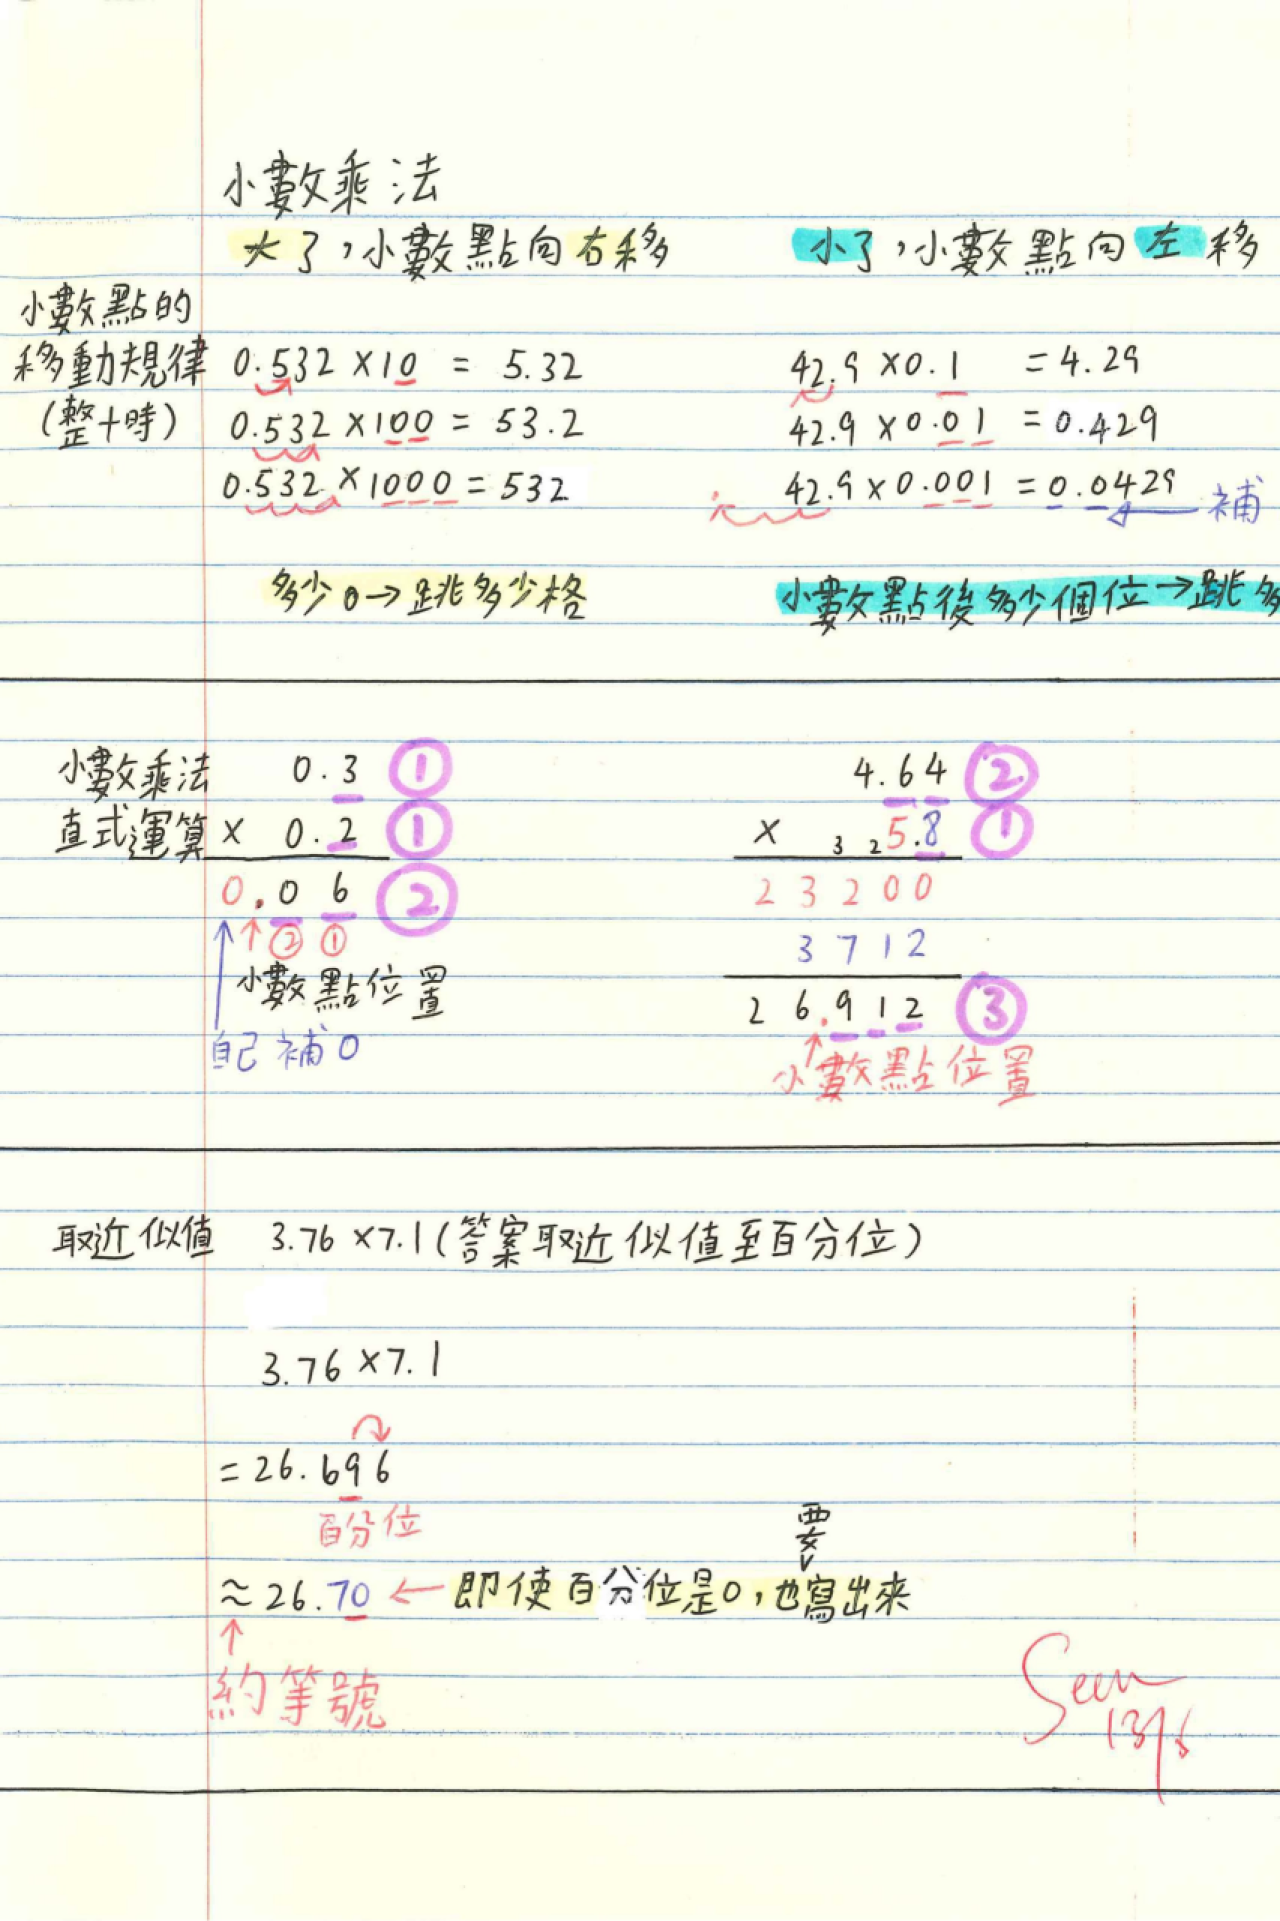 小數乘法
大了，小數點向右移　小了，小數點向左移
小數點的
移動規律　0.532 × 10 = 5.32　42.9 × 0.1 = 4.29
(整十時)　0.532 × 100 = 53.2　42.9 × 0.01 = 0.429
0.532 × 1000 = 532　42.9 × 0.001 = 0.0429 ← 補
多少0→跳多少格　小數點後多少個位→跳多
小數乘法　0.3 ①　4.64 ②
直式運算　× 0.2 ①　× 3 2 5.8 ①
0.06 ②　23200
② ①　3712
小數點位置　26.912 ③
自己補0　小數點位置
取近似值　3.76 × 7.1 (答案取近似值至百分位)
3.76 × 7.1
= 26.696
百分位
要
≈ 26.70 ← 即使百分位是0，也寫出來
約等號
Seen